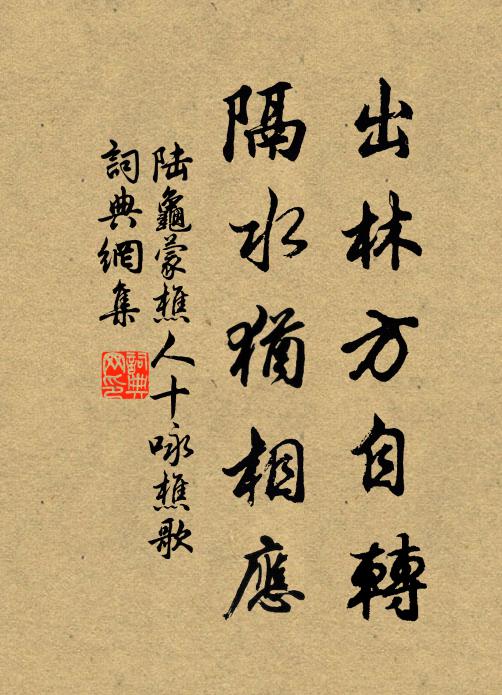 出林方自轉
隔水猶相應
陆龜蒙樵人十咏樵歌
詞典網集
詞典网印